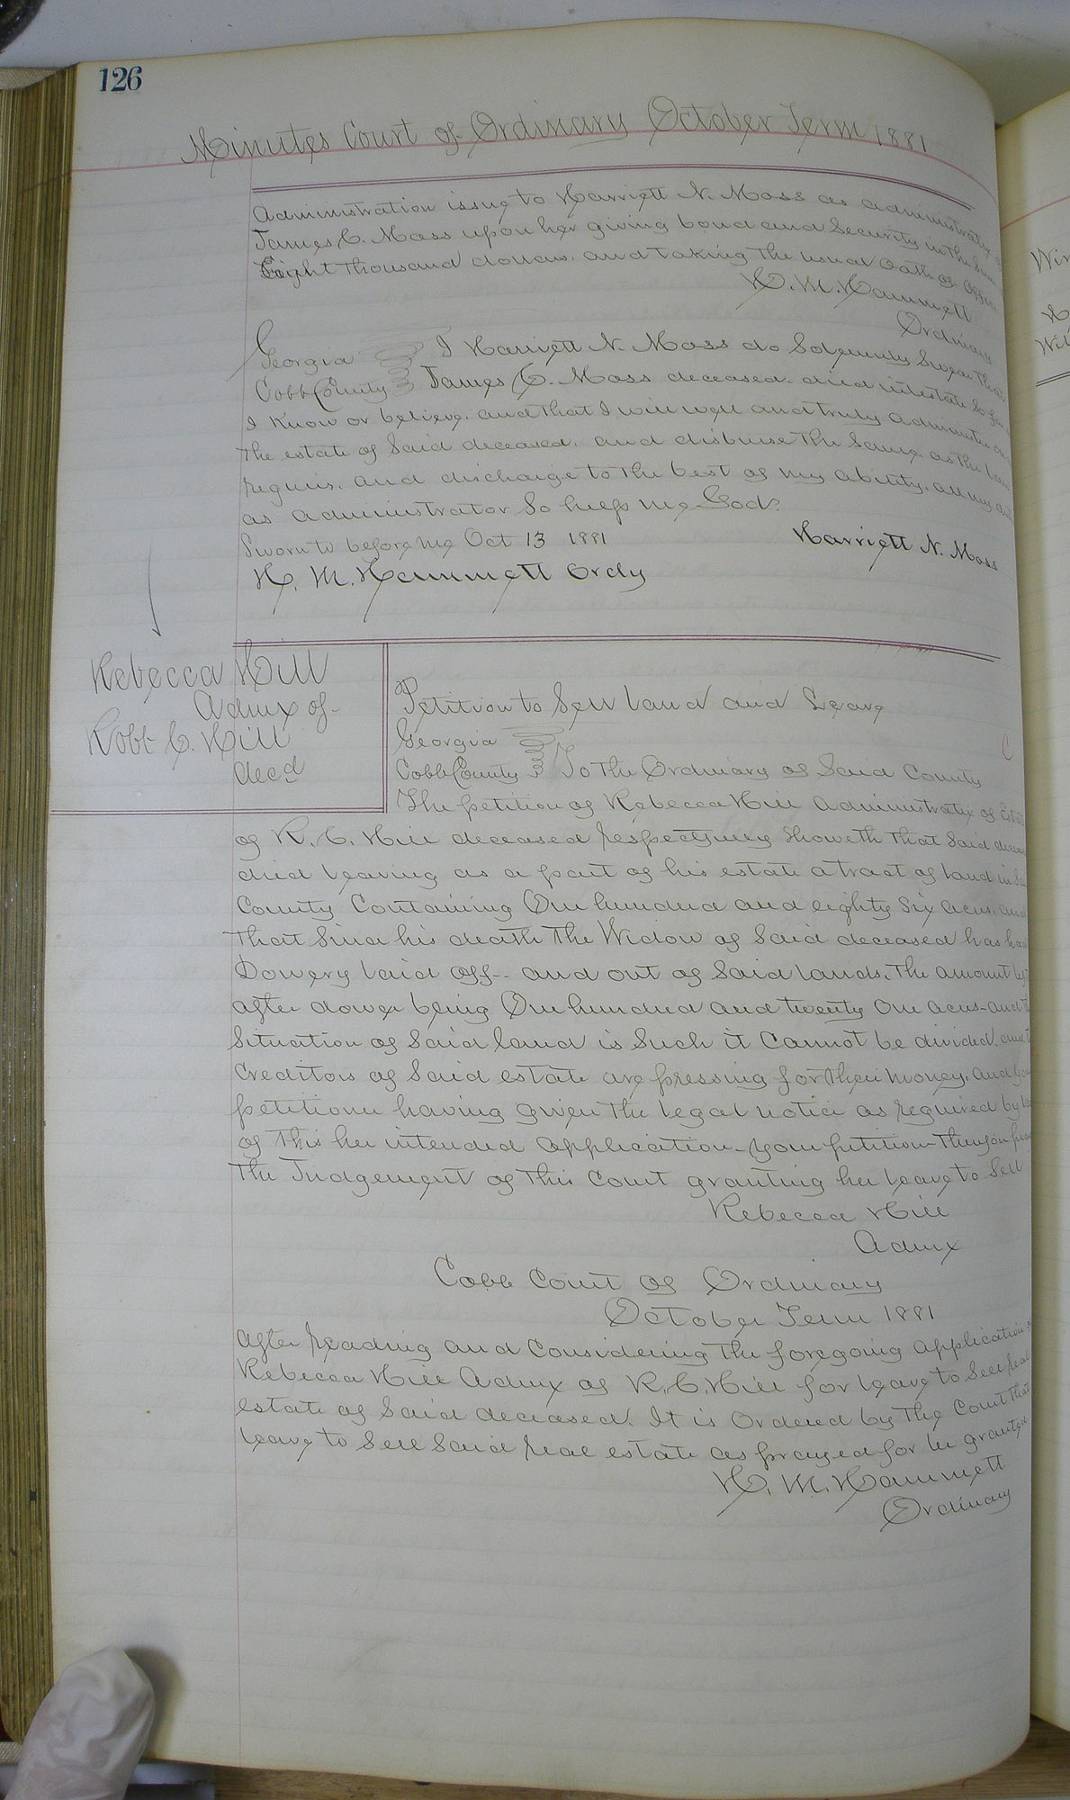 126
Minutes Court of Ordinary October Term 1881
Administration issue to Harriett N. Moss as administratrix
James C. Moss upon her giving bond and Security in the Sum
Eight thousand dollars. and taking the usual oath of office
H. M. Hammett
Ordinary
Georgia
I Harriett N. Moss do Solemnly Swear that
Cobb County
James C. Moss deceased. died intestate So far
I Know or believe. and that I will well and truly administer on
the estate of Said deceased. and disburse the Same as the law
requires. and discharge to the best of my ability. all my
as administrator So help me God.
Sworn to before me Oct 13 1881
Harriett N. Moss
H. M. Hammett Ordy
Rebecca Hill
Admx of
Robt C. Hill
decd
Petition to Sell Land and Leave
Georgia
Cobb County To the Ordinary of Said County
The petition of Rebecca Hill administratrix of
of R. C. Hill deceased respectfully Showeth that Said
died leaving as a part of his estate a tract of land in
County Containing One hundred and eighty Six acres. and
that Since his death the Widow of Said deceased has had
Dowery laid off- and out of Said lands. the amount
after dower being One hundred and twenty One acres- and
Situation of Said land is Such it Cannot be divided. and
Creditors of Said estate are pressing for their money. and
petitioner having given the legal notice as required by
of this her intended application- your petition- therefore
the Judgement of this Court granting her leave to Sell
Rebecca Hill
Admx
Cobb Court of Ordinary
October Term 1881
After reading and Considering the foregoing application
Rebecca Hill Admx of R. C. Hill for leave to Sell real
estate of Said deceased. It is Ordered by the Court that
leave to Sell Said real estate as prayed for be granted
H. M. Hammett
Ordinary